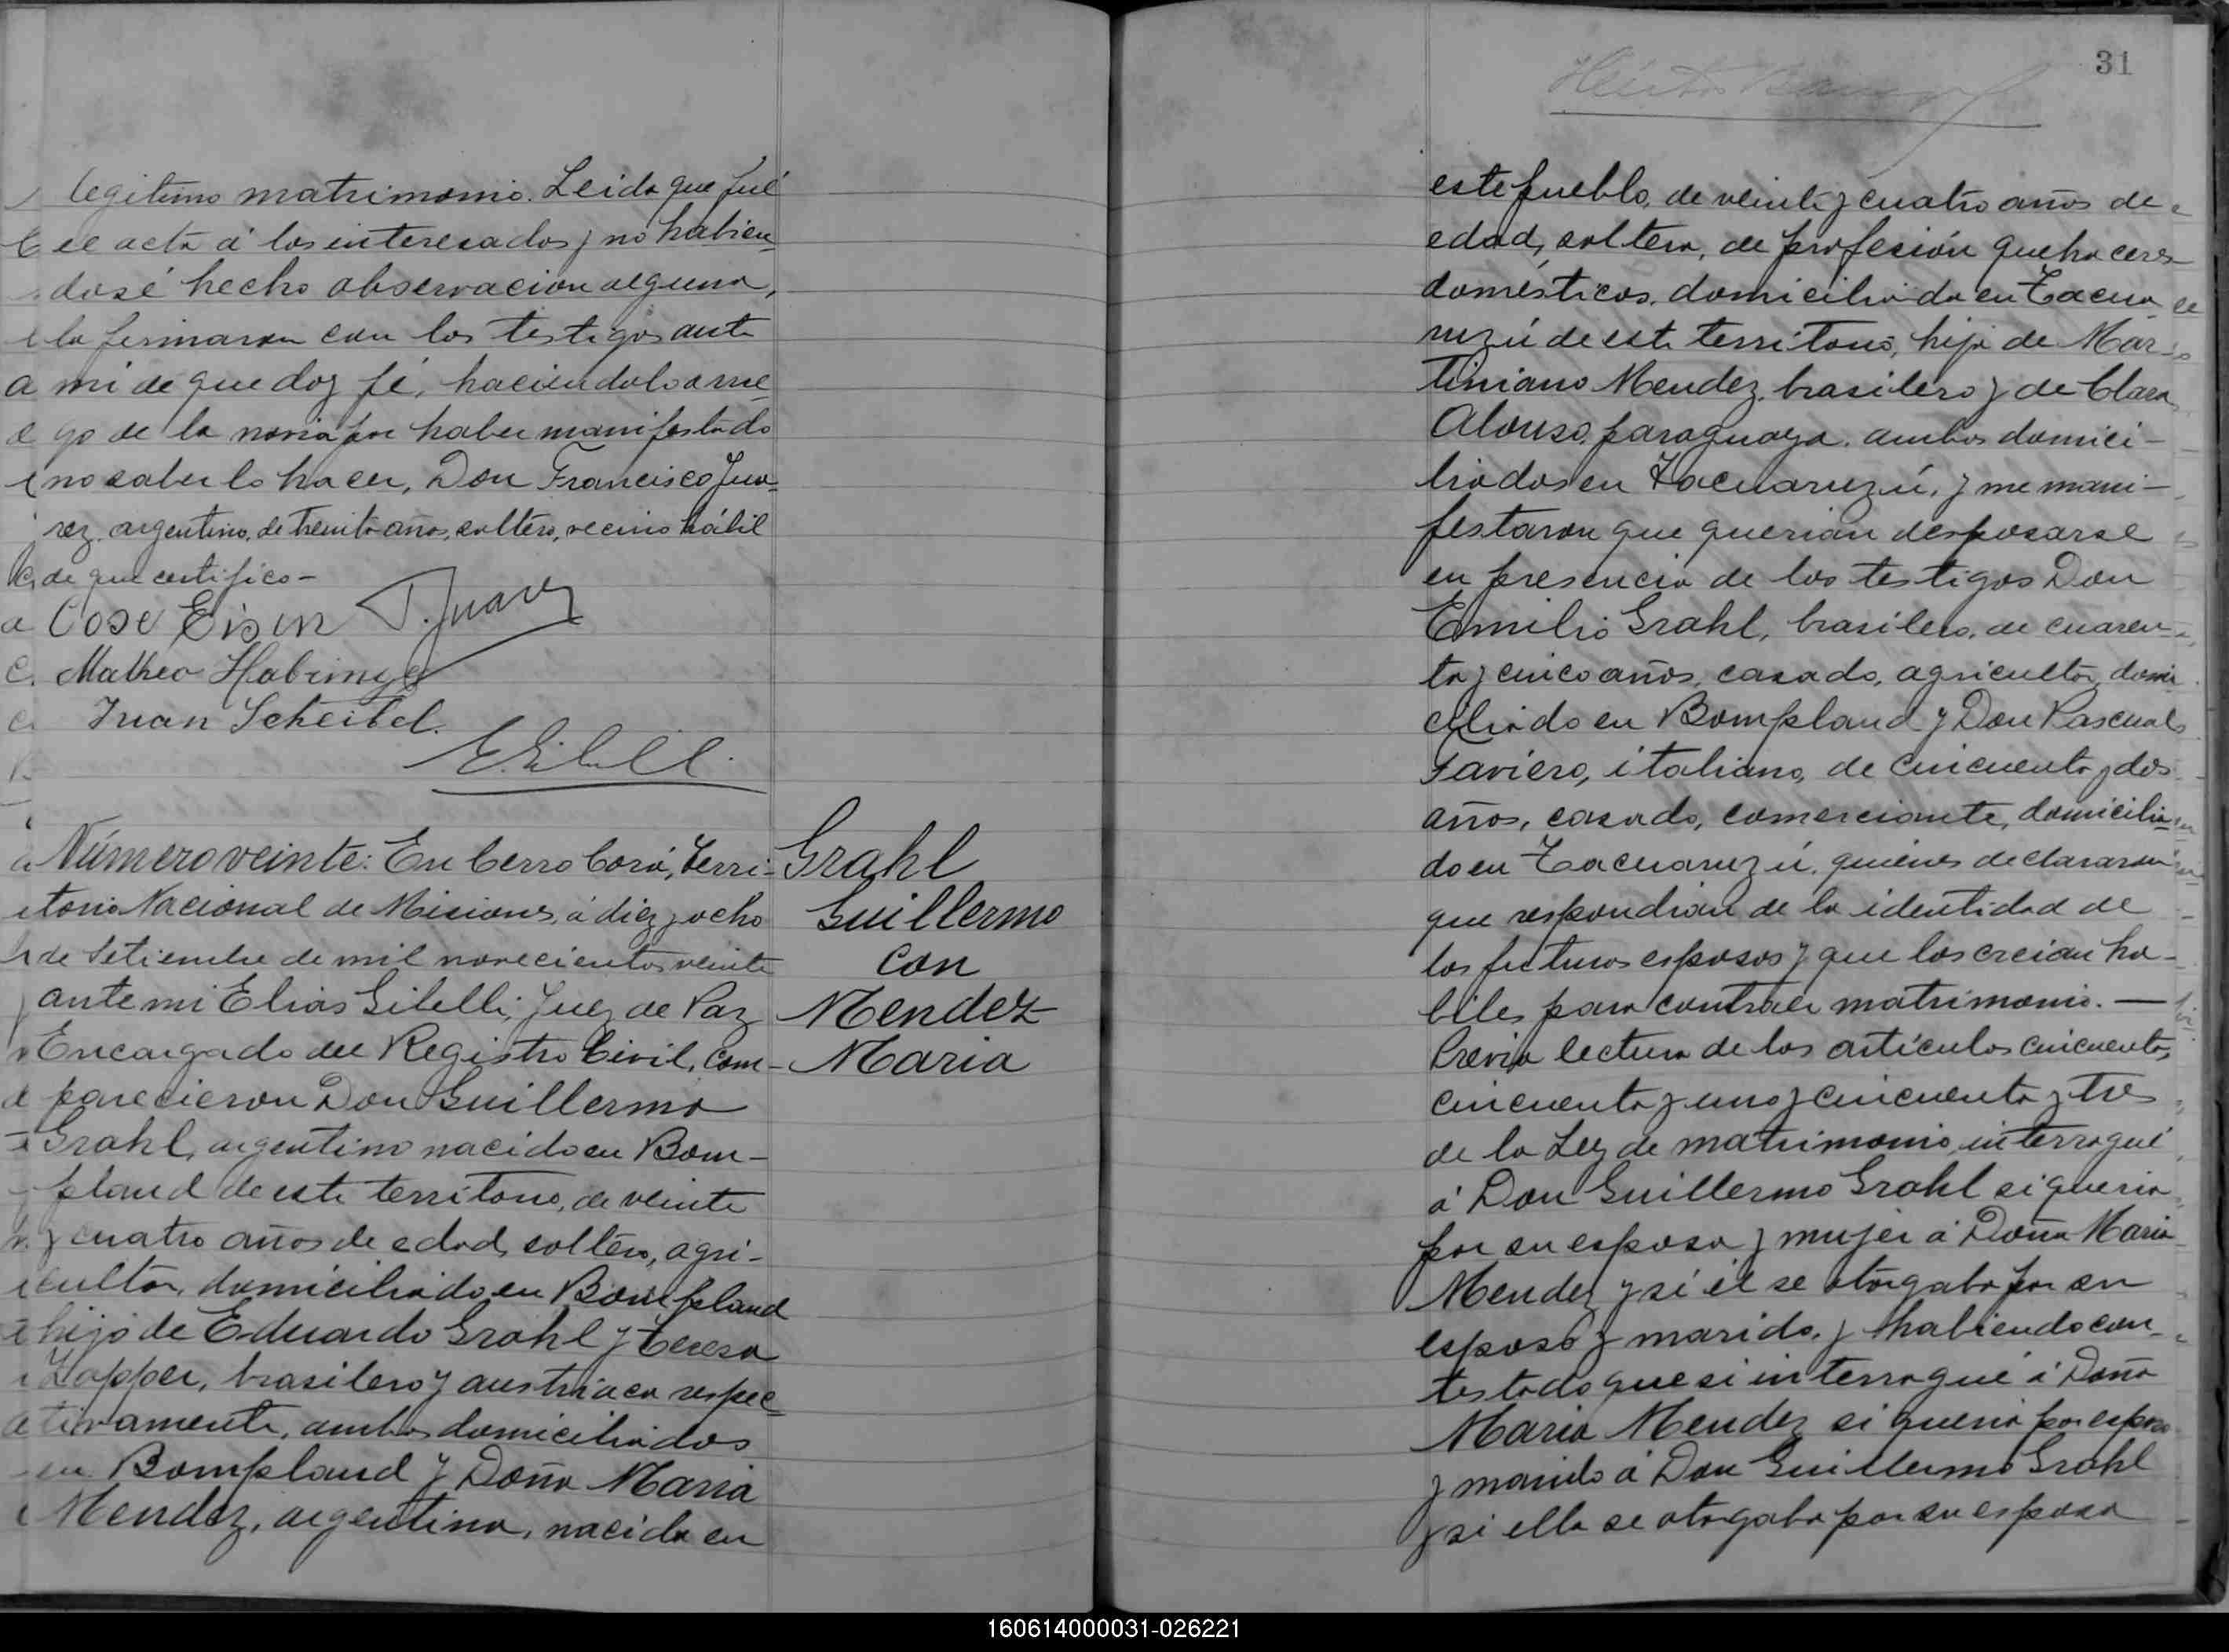 legitimo matrimonio. Leida que fué
el acta á los interesados y no habien-
dosé hecho observacion alguna,
la firmaron con los testigos ante
mi de que doy fé, haciendolo a rue-
go de la novia por haber manifestado
no saberlo hacer, Don Francisco Jua-
rez, argentino, de treinta años, soltero, vecino hábil
de que certifico-
Cose Eisen F. Juarez
Matheo Habimye
Juan Scheibel.
E. Gibelli.
Número veinte: En Cerro Corá, Terri-
torio Nacional de Misiones, á diez y ocho
de Setiembre de mil novecientos veinte
ante mi Elias Gibelli, Juez de Paz
Encargado del Registro Civil, com-
parecieron Don Guillermo
Grahl, argentino nacido en Bom-
pland de este territorio, de veinte
y cuatro años de edad, soltero, agri-
cultor, domiciliado en Bompland
hijo de Eduardo Grahl y Teresa
Zapper, brasilero y austriaca respec-
tivamente, ambos domiciliados
en Bompland y Doña Maria
Mendez, argentina, nacida en
Grahl
Guillermo
con
Mendez
Maria
31
este pueblo, de veinte y cuatro años de
edad, soltera, de profesión quehaceres
domésticos, domiciliada en Tacua-
ruzú de este territorio, hija de Mar-
tiniano Mendez, brasilero y de Clara
Alonso, paraguaya, ambos domici-
liados en Tacuaruzú, y me mani-
festaron que querian desposarse
en presencia de los testigos Don
Emilio Grahl, brasilero, de cuaren-
ta y cinco años, casado, agricultor, domi
ciliado en Bompland y Don Pascual
Faviero, italiano, de cincuenta y dos
años, casado, comerciante, domicilia-
do en Tacuaruzú, quiénes declararon
que respondian de la identidad de
los futuros esposos y que los creian ha-
biles para contraer matrimonio. —
Previa lectura de los artículos cincuenta,
cincuenta y uno y cincuenta y tres
de la Ley de matrimonio, interrogué
á Don Guillermo Grahl si queria
por su esposa y mujer á Doña Maria
Mendez y si él se otorgaba por su
esposo y marido, y habiendo con-
testado que si interrogué á Doña
Maria Mendez si queria por esposo
y marido á Don Guillermo Grahl
y si ella se otorgaba por su esposa
160614000031-026221